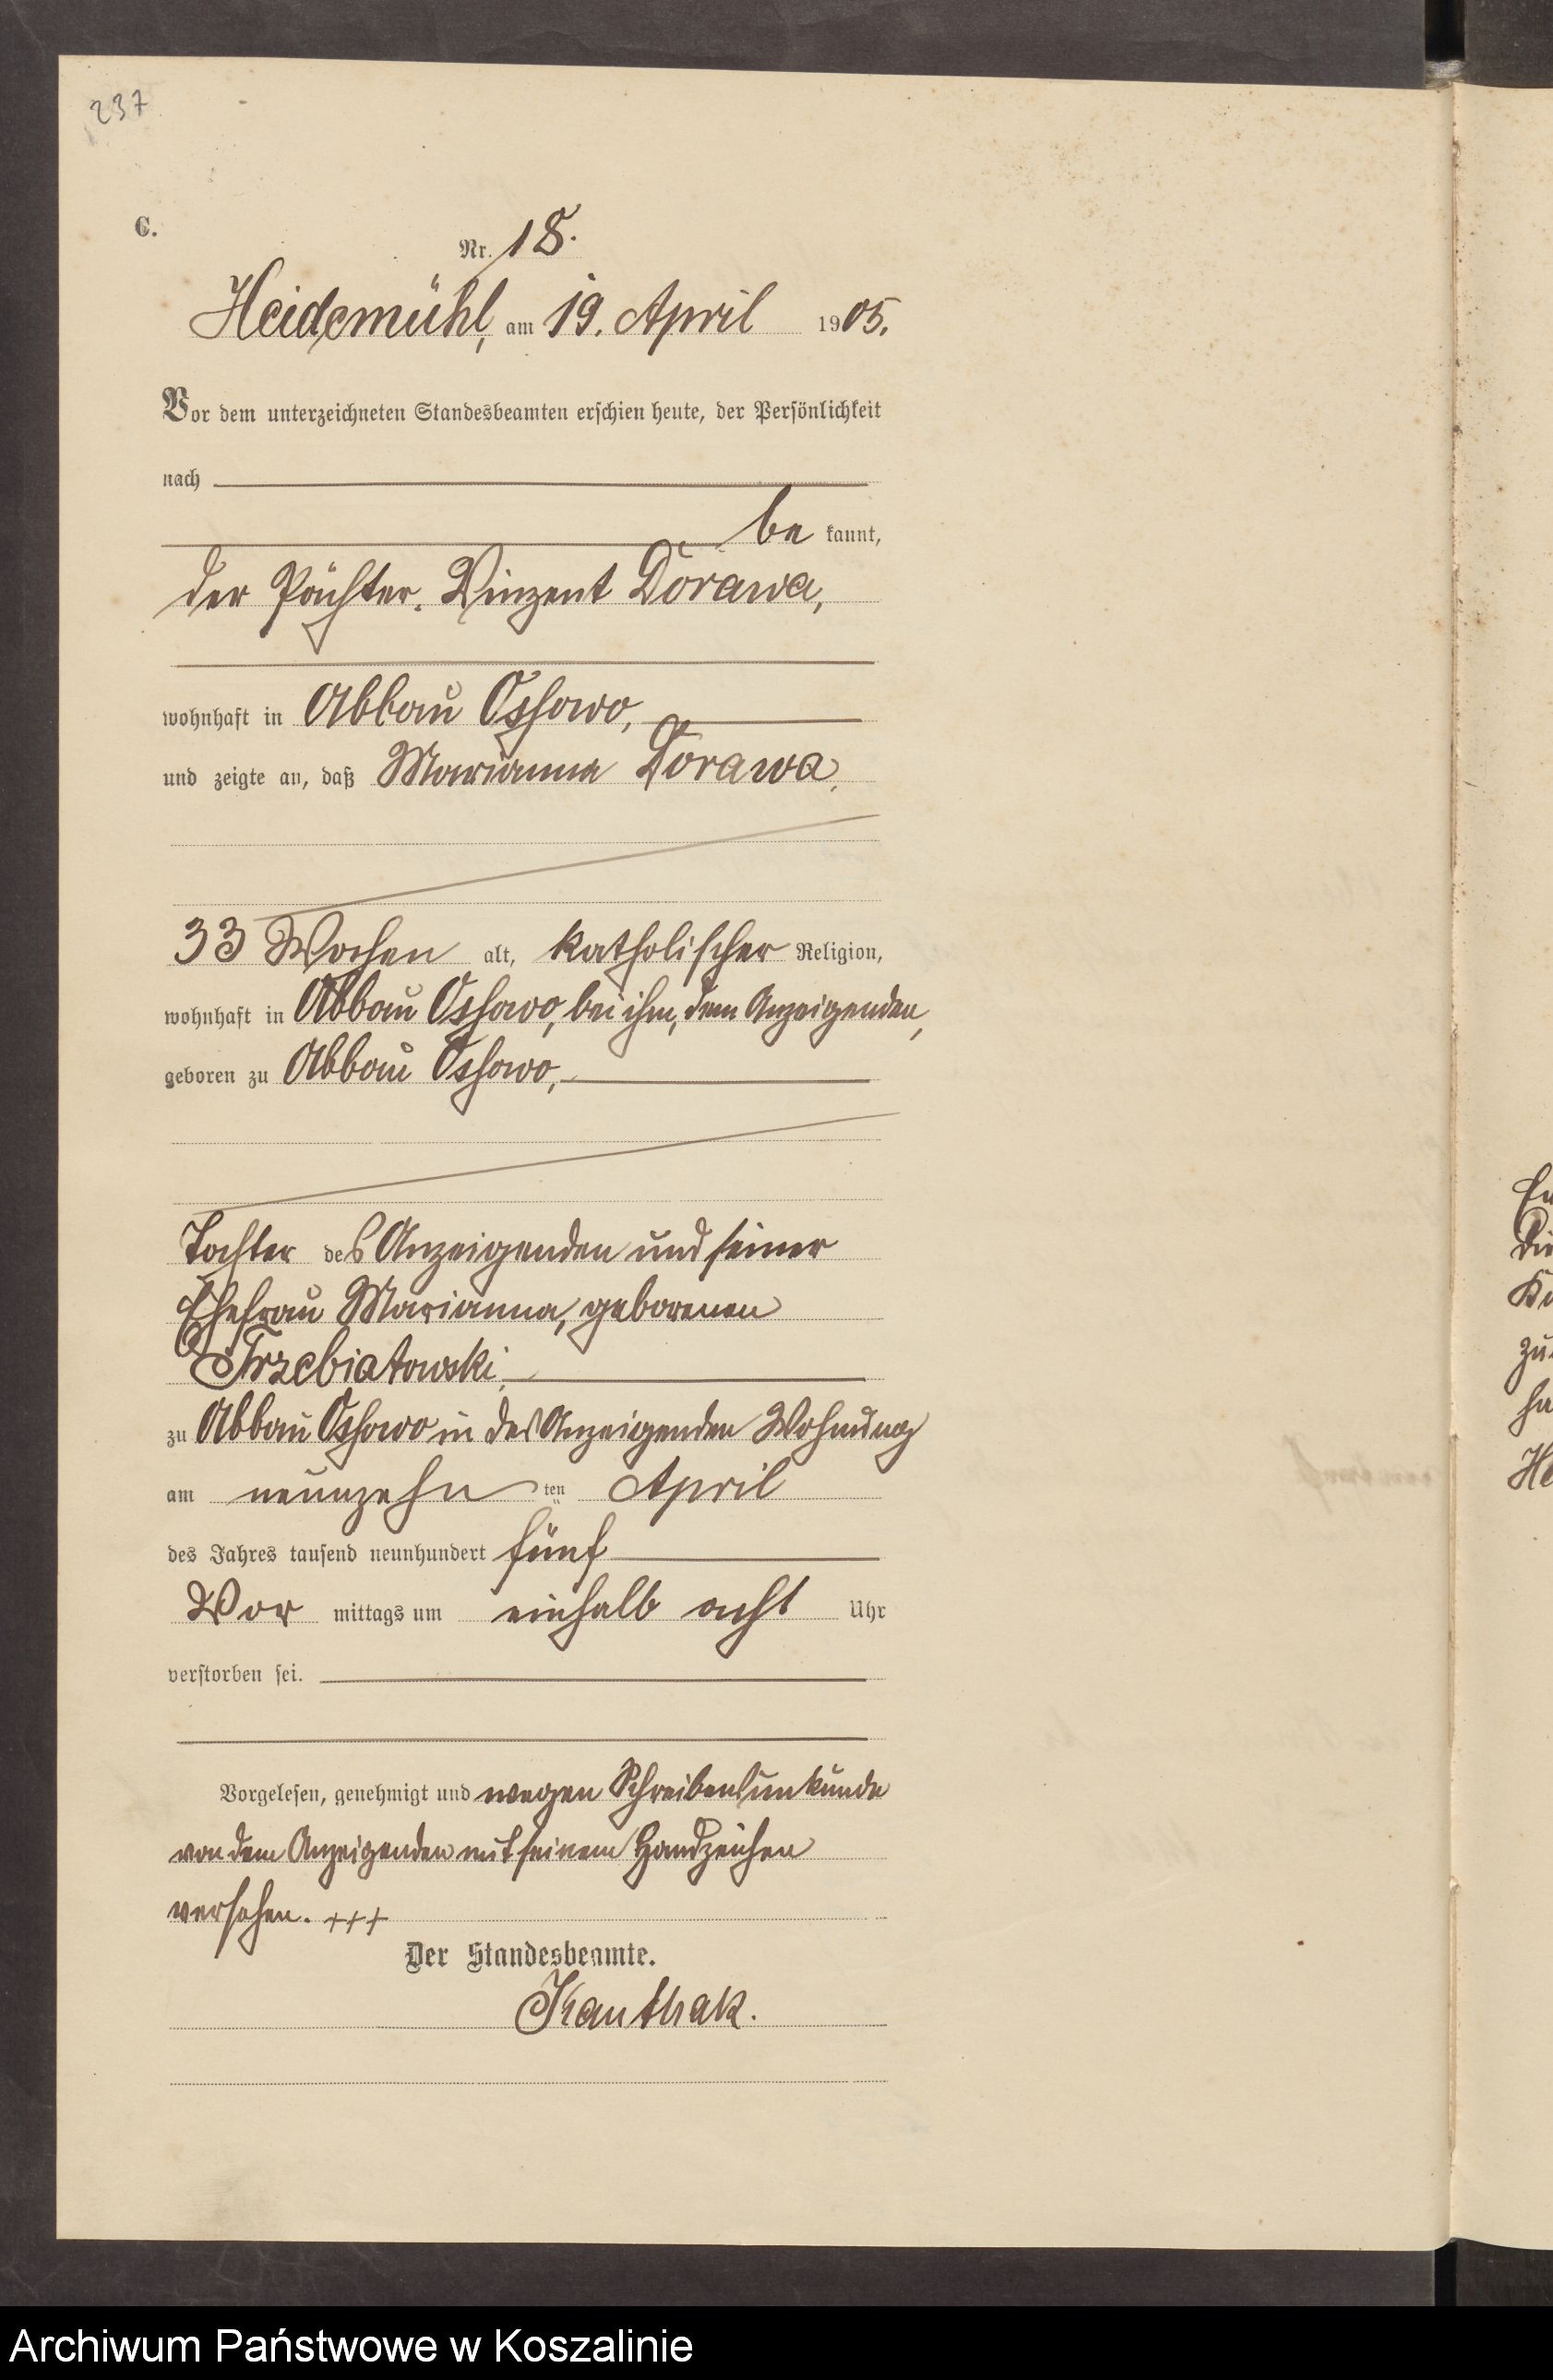 237
C.
Nr. 18.
Heidemühl, am 19. April 1905.
Vor dem unterzeichneten Standesbeamten erschien heute, der Persönlichkeit
nach
be kannt,
der Pächter Vinzent Dorawa,
wohnhaft in Abbau Ossowo,
und zeigte an, daß Marianna Dorawa,
33 Wochen alt, katholischer Religion,
wohnhaft in Abbau Ossowo, bei ihm, dem Anzeigenden,
geboren zu Abbau Ossowo,
Tochter des Anzeigenden und seiner
Ehefrau Marianna, geborenen
Trzebiatowski,
zu Abbau Ossowo in des Anzeigenden Wohnung
am neunzehn ten April
des Jahres tausend neunhundert fünf
Vor mittags um einhalb acht Uhr
verstorben sei.
Vorgelesen, genehmigt und wegen Schreibensunkunde
von dem Anzeigenden mit seinem Handzeichen
versehen. +++
Der Standesbeamte.
Kauthak.
Archiwum Państwowe w Koszalinie